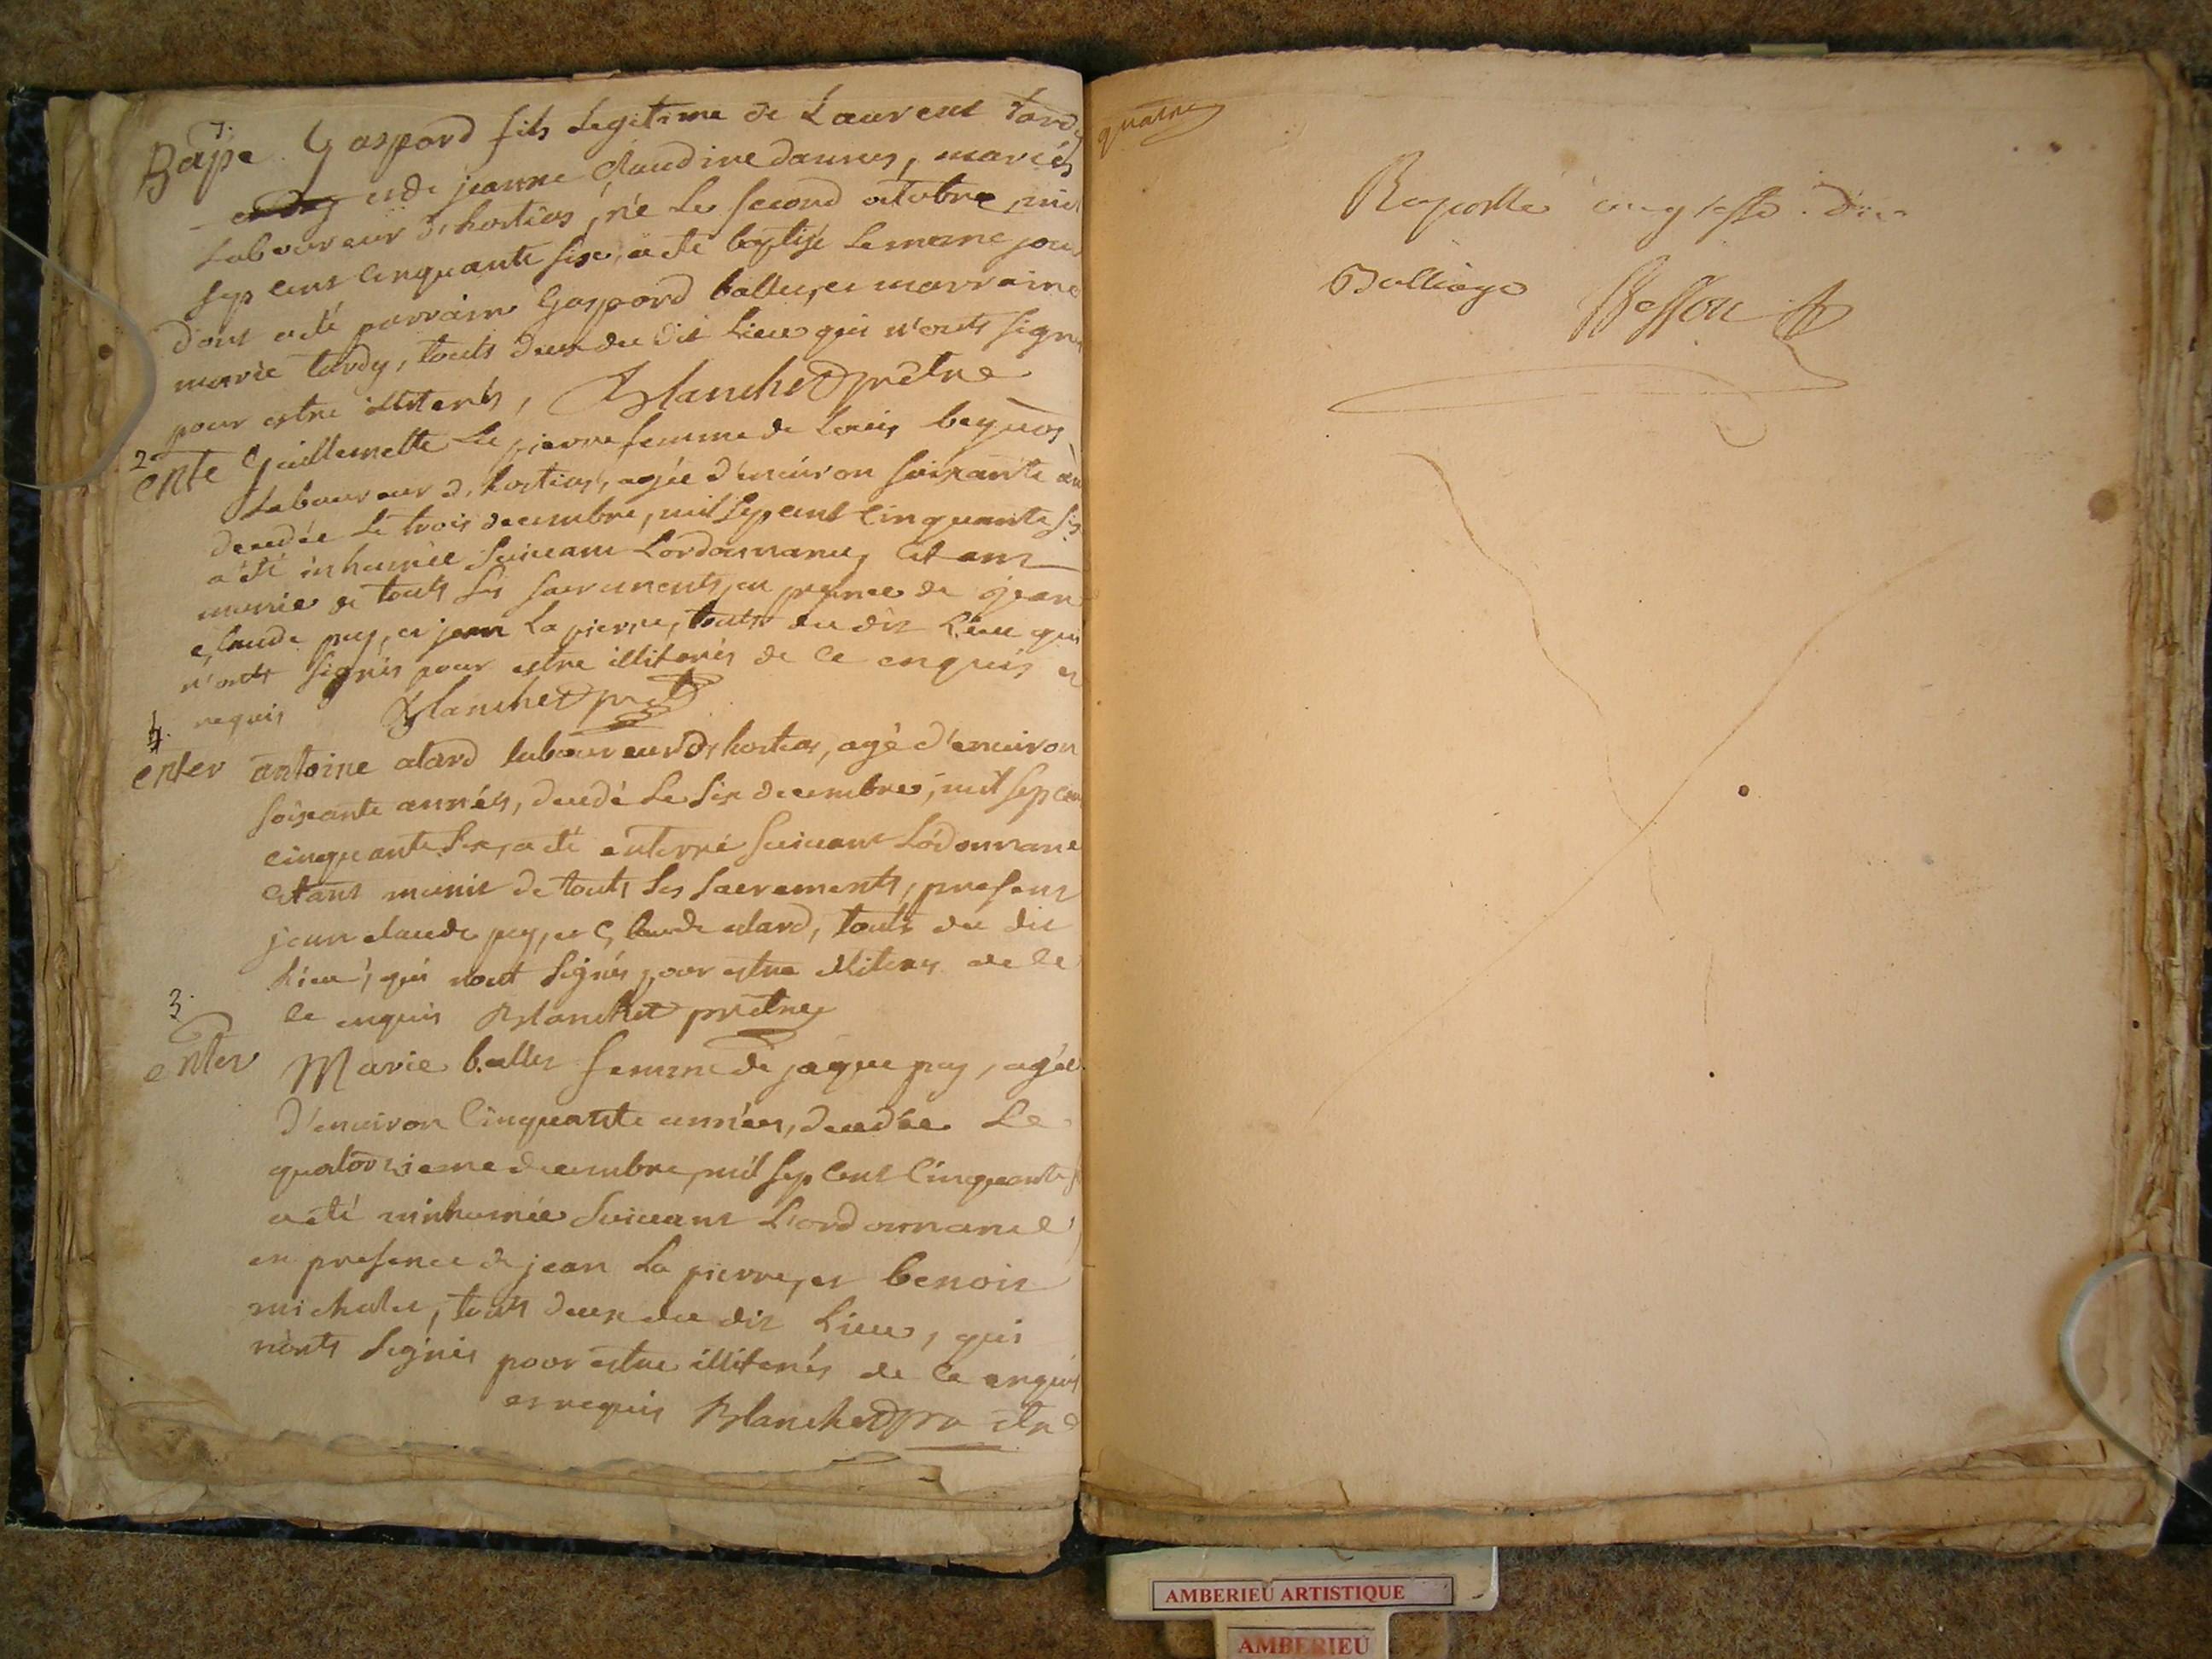 1.
Bapt Gaspard fils legitime de Laurent tardy
et de jeanne Claudine daunes, mariés
Laboureur d'hostias, né Le second octobre mil
sep cent cinquante six, a été baptisé Le meme jour
dont a été parrain Gaspard ballet, et marraine
marie tardy, touts deux du dit Lieu qui n'onts signé
pour estre illiterés, Blanchet prêtre
2
ente Guillemette La pierre femme de Louis
Laboureur d'hostias, agée d'enuiron soixante an
decedée Le trois decembre, mil sep cent cinquante six
a été inhumée suiuant Lordonnance, etant
munie de touts les sacrements, en presence de jean
claude puy, et jean La pierre, touts du dit Lieu qui
n'onts signés pour estre illiterés de ce enquis et
requis Blanchet pret
4.
enter antoine alard laboureur d'hostias, agé d'enuiron
soixante années, decedé Le six decembre, mil sep cent
cinquante six, a été enterré suiuant Lódonnance
etant munit de touts les sacrements, present
jean claude puy, et claude alard, touts du dit
Lieu, qui nont signés pour estre illiterés de ce
ce enquis Blanchet prêtre
3.
enter Marie ballet femme de jaque puy, agée
d'enuiron cinquante années, decedée Le
quatorzieme decembre, mil sep cent cinquante
a été inhumée suiuant Lordonnance
en presence de jean La pierre, et benoit
michalet, touts deux du dit Lieu, qui
nonts signés pour estre illiterés de ce enquis
et requis Blanchet prêtre
quatre
Raporté au greffe du
Balliage Besson
AMBERIEU ARTISTIQUE
AMBERIEU